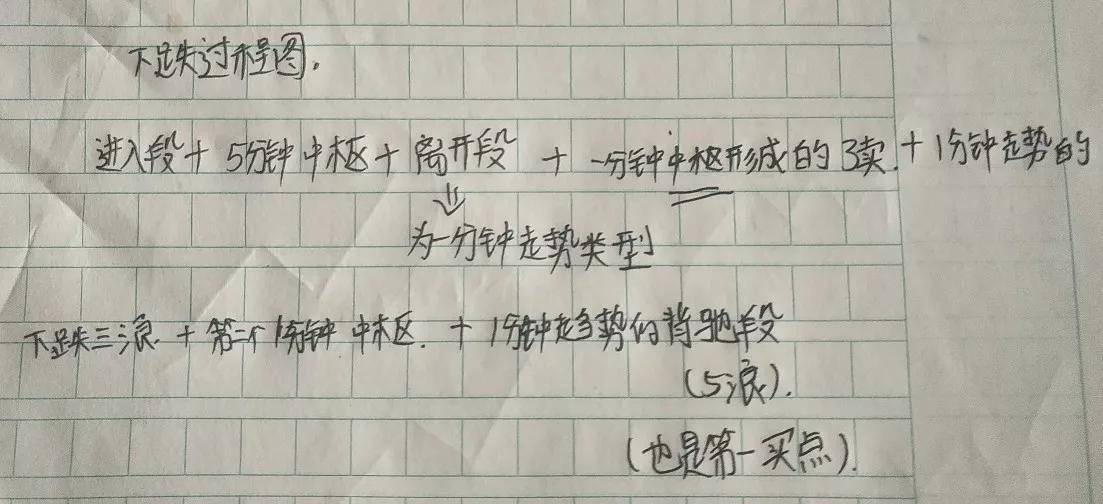 下跌过程图.
进入段+5分钟中枢+离开段+一分钟中枢形成的3卖.+1分钟走势的
为一分钟走势类型
下跌三浪+第二个1分钟中枢.+1分钟走势的背驰段
(5浪).
(也是第一买点).